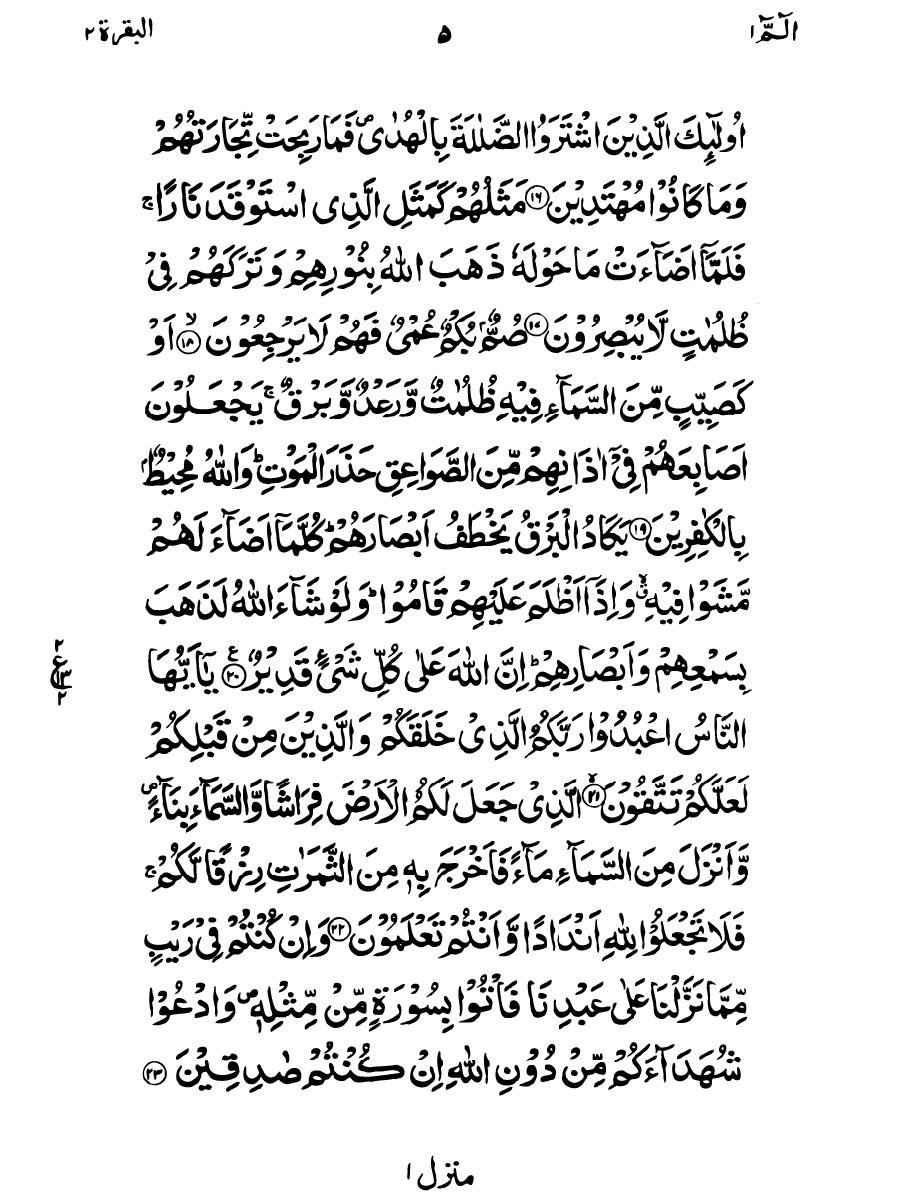 الٓمّٓ ١
٥
البقرة ٢
اُولٰٓئِكَ الَّذِيْنَ اشْتَرَوُا الضَّلٰلَةَ بِالْهُدٰى ۪ فَمَا رَبِحَتْ تِّجَارَتُهُمْ
وَمَا كَانُوْا مُهْتَدِيْنَ ﴿١٦﴾ مَثَلُهُمْ كَمَثَلِ الَّذِى اسْتَوْقَدَ نَارًا ۚ
فَلَمَّاۤ اَضَآءَتْ مَا حَوْلَهٗ ذَهَبَ اللّٰهُ بِنُوْرِهِمْ وَتَرَكَهُمْ فِىْ
ظُلُمٰتٍ لَّا يُبْصِرُوْنَ ﴿١٧﴾ صُمٌّۢ بُكْمٌ عُمْىٌ فَهُمْ لَا يَرْجِعُوْنَ ۙ﴿١٨﴾ اَوْ
كَصَيِّبٍ مِّنَ السَّمَآءِ فِيْهِ ظُلُمٰتٌ وَّرَعْدٌ وَّبَرْقٌ ۚ يَجْعَلُوْنَ
اَصَابِعَهُمْ فِىْۤ اٰذَانِهِمْ مِّنَ الصَّوَاعِقِ حَذَرَ الْمَوْتِ ؕ وَاللّٰهُ مُحِيْطٌۢ
بِالْكٰفِرِيْنَ ﴿١٩﴾ يَكَادُ الْبَرْقُ يَخْطَفُ اَبْصَارَهُمْ ؕ كُلَّمَاۤ اَضَآءَ لَهُمْ
مَّشَوْا فِيْهِ ۙۗ وَاِذَاۤ اَظْلَمَ عَلَيْهِمْ قَامُوْا ؕ وَلَوْ شَآءَ اللّٰهُ لَذَهَبَ
بِسَمْعِهِمْ وَاَبْصَارِهِمْ ؕ اِنَّ اللّٰهَ عَلٰى كُلِّ شَىْءٍ قَدِيْرٌ ﴿٢٠﴾ يٰۤاَيُّهَا
النَّاسُ اعْبُدُوْا رَبَّكُمُ الَّذِىْ خَلَقَكُمْ وَالَّذِيْنَ مِنْ قَبْلِكُمْ
لَعَلَّكُمْ تَتَّقُوْنَ ۙ﴿٢١﴾ الَّذِىْ جَعَلَ لَكُمُ الْاَرْضَ فِرَاشًا وَّالسَّمَآءَ بِنَآءً ۪
وَّاَنْزَلَ مِنَ السَّمَآءِ مَآءً فَاَخْرَجَ بِهٖ مِنَ الثَّمَرٰتِ رِزْقًا لَّكُمْ ۚ
فَلَا تَجْعَلُوْا لِلّٰهِ اَنْدَادًا وَّاَنْتُمْ تَعْلَمُوْنَ ﴿٢٢﴾ وَاِنْ كُنْتُمْ فِىْ رَيْبٍ
مِّمَّا نَزَّلْنَا عَلٰى عَبْدِنَا فَاْتُوْا بِسُوْرَةٍ مِّنْ مِّثْلِهٖ ۪ وَادْعُوْا
شُهَدَآءَكُمْ مِّنْ دُوْنِ اللّٰهِ اِنْ كُنْتُمْ صٰدِقِيْنَ ﴿٢٣﴾
٢
ع
١٣
٢
منزل ١